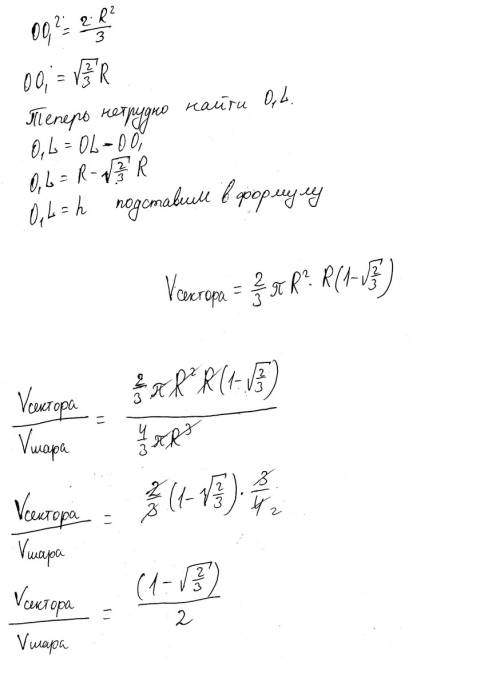 OO₁² = 2·R²/3
OO₁ = √(2/3) R
Теперь нетрудно найти O₁L.
O₁L = OL - OO₁
O₁L = R - √(2/3) R
O₁L = h подставим в формулу
Vсектора = 2/3 πR² · R(1-√(2/3))
Vсектора/Vшара = (2/3 πR² R(1-√(2/3)))/(4/3 πR³)
Vсектора/Vшара = 2/3 (1-√(2/3)) · 3/4 2
Vсектора/Vшара = (1-√(2/3))/2